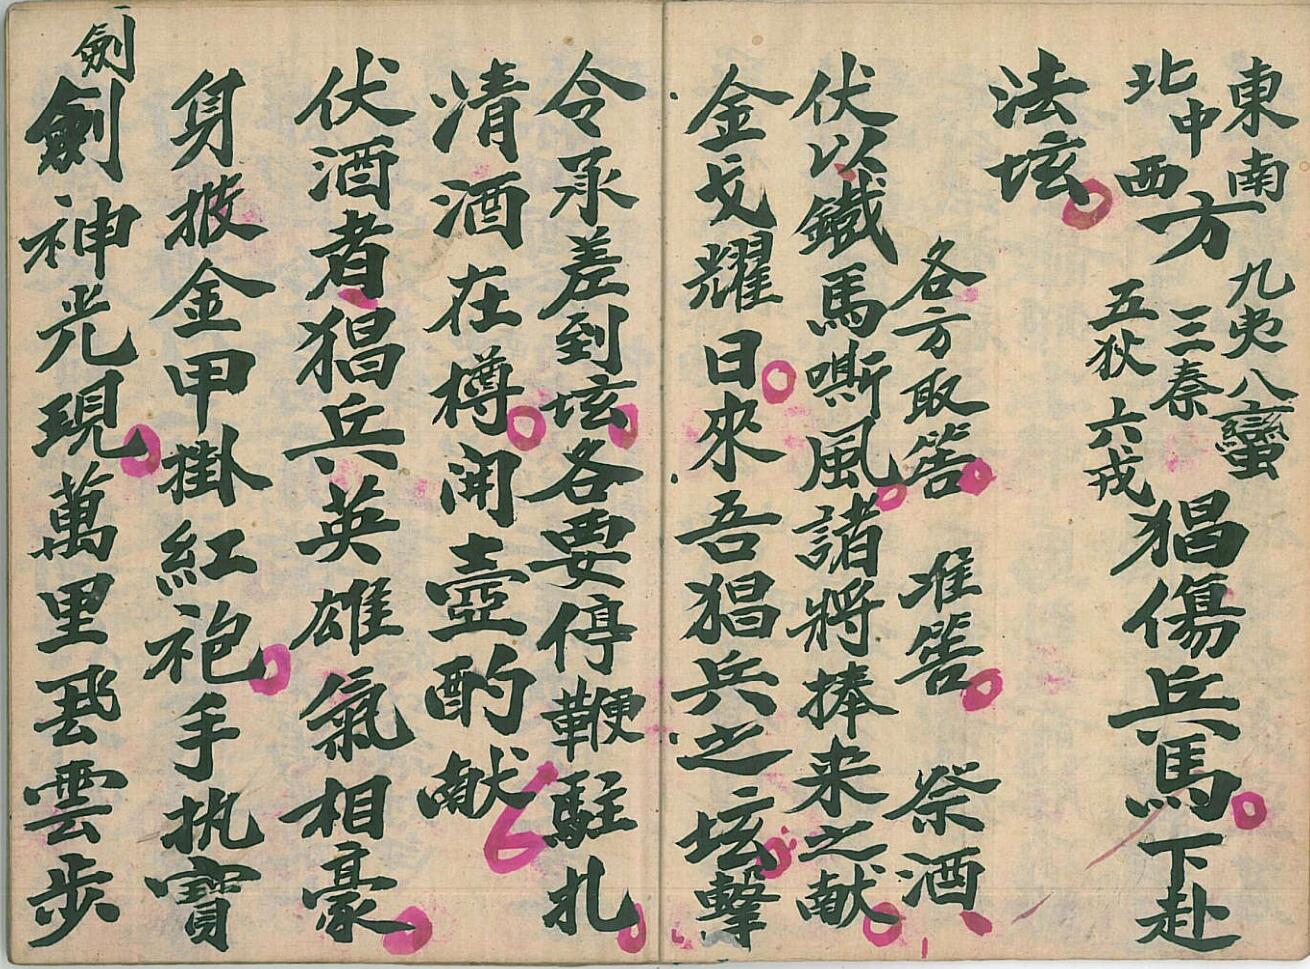 東南中西北方九夷八蠻三秦六戎五狄猖傷兵馬下赴
法坛
各方取筶　准筶　祭酒
伏以鐵馬嘶風諸將捧来之献
金戈耀日來吾猖兵之坛擊
令承差到坛各要停鞭駐扎
清酒在樽開壺酌献
伏酒者猖兵英雄氣相豪
身披金甲掛紅袍手执寳
劍
劍神光現萬里飛雲步
6